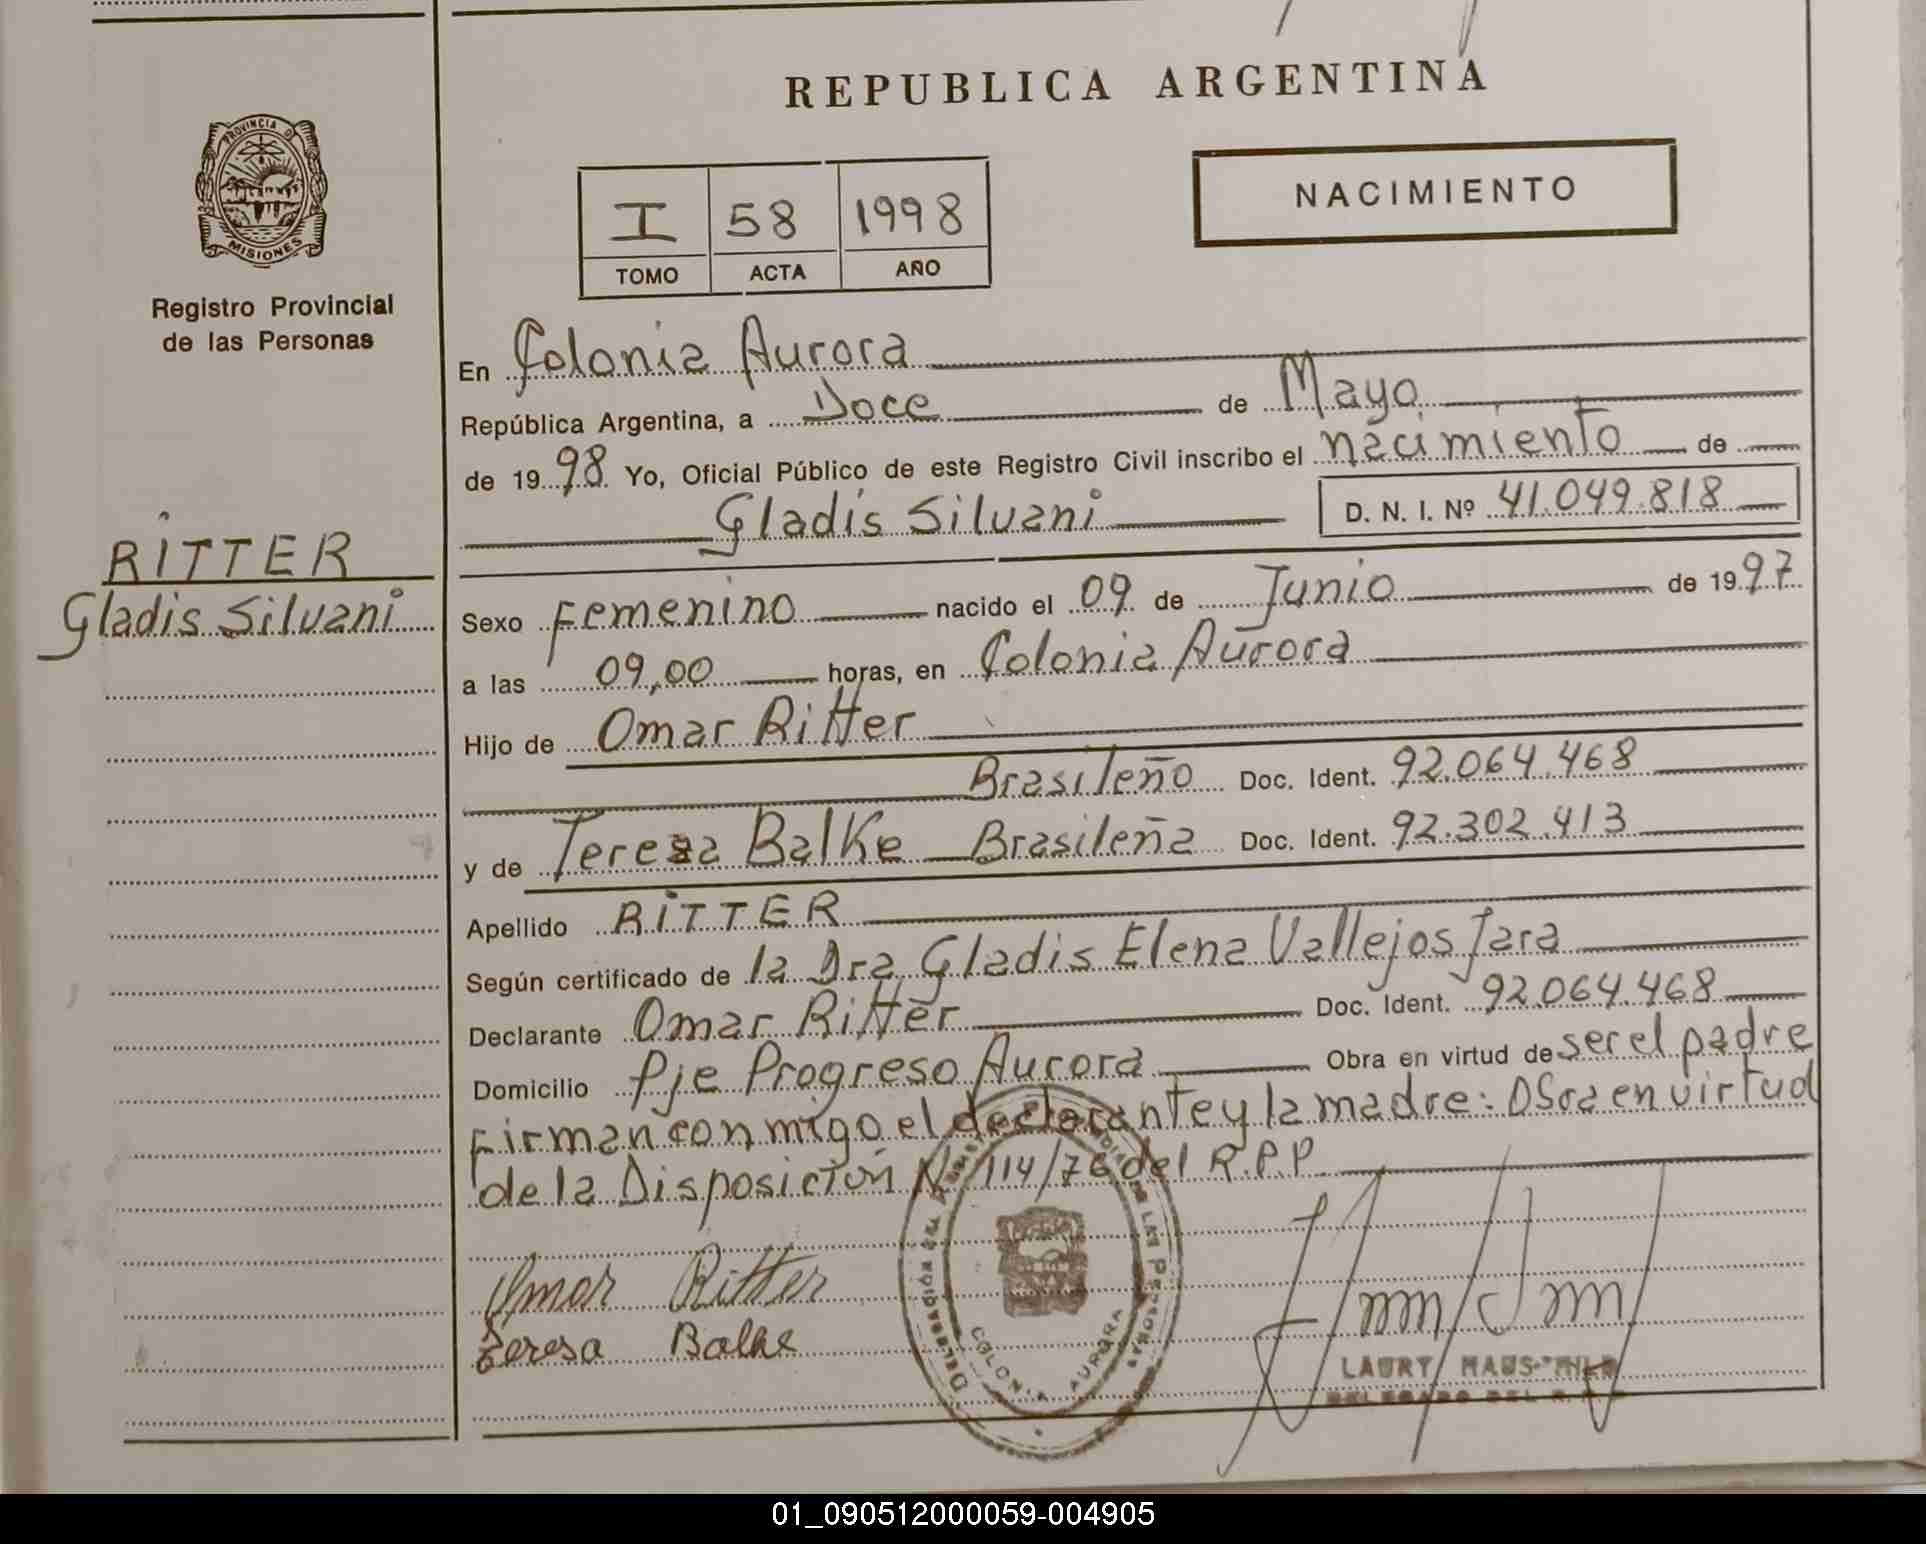 REPUBLICA ARGENTINA
PROVINCIA DE
MISIONES
Registro Provincial
de las Personas
I 58 1998
TOMO ACTA AÑO
NACIMIENTO
RITTER
Gladis Silvani
En Colonia Aurora
República Argentina, a Doce de Mayo
de 1998 Yo, Oficial Público de este Registro Civil inscribo el nacimiento de
Gladis Silvani D. N. I. Nº 41.049.818
Sexo Femenino nacido el 09 de Junio de 1997
a las 09,00 horas, en Colonia Aurora
Hijo de Omar Ritter
Brasileño Doc. Ident. 92.064.468
y de Teresa Balke Brasileña Doc. Ident. 92.302.413
Apellido RITTER
Según certificado de la Dra Gladis Elena Vallejos Jara
Declarante Omar Ritter Doc. Ident. 92.064.468
Domicilio Pje Progreso Aurora Obra en virtud de ser el padre
Firman conmigo el declarante y la madre: OSra en virtud
de la Disposición Nº 114/76 del R.P.P.
Omar Ritter
Teresa Balke
COLONIA AURORA
DE LAS PERSONAS
LAURY
DELEGADO DEL
01_090512000059-004905